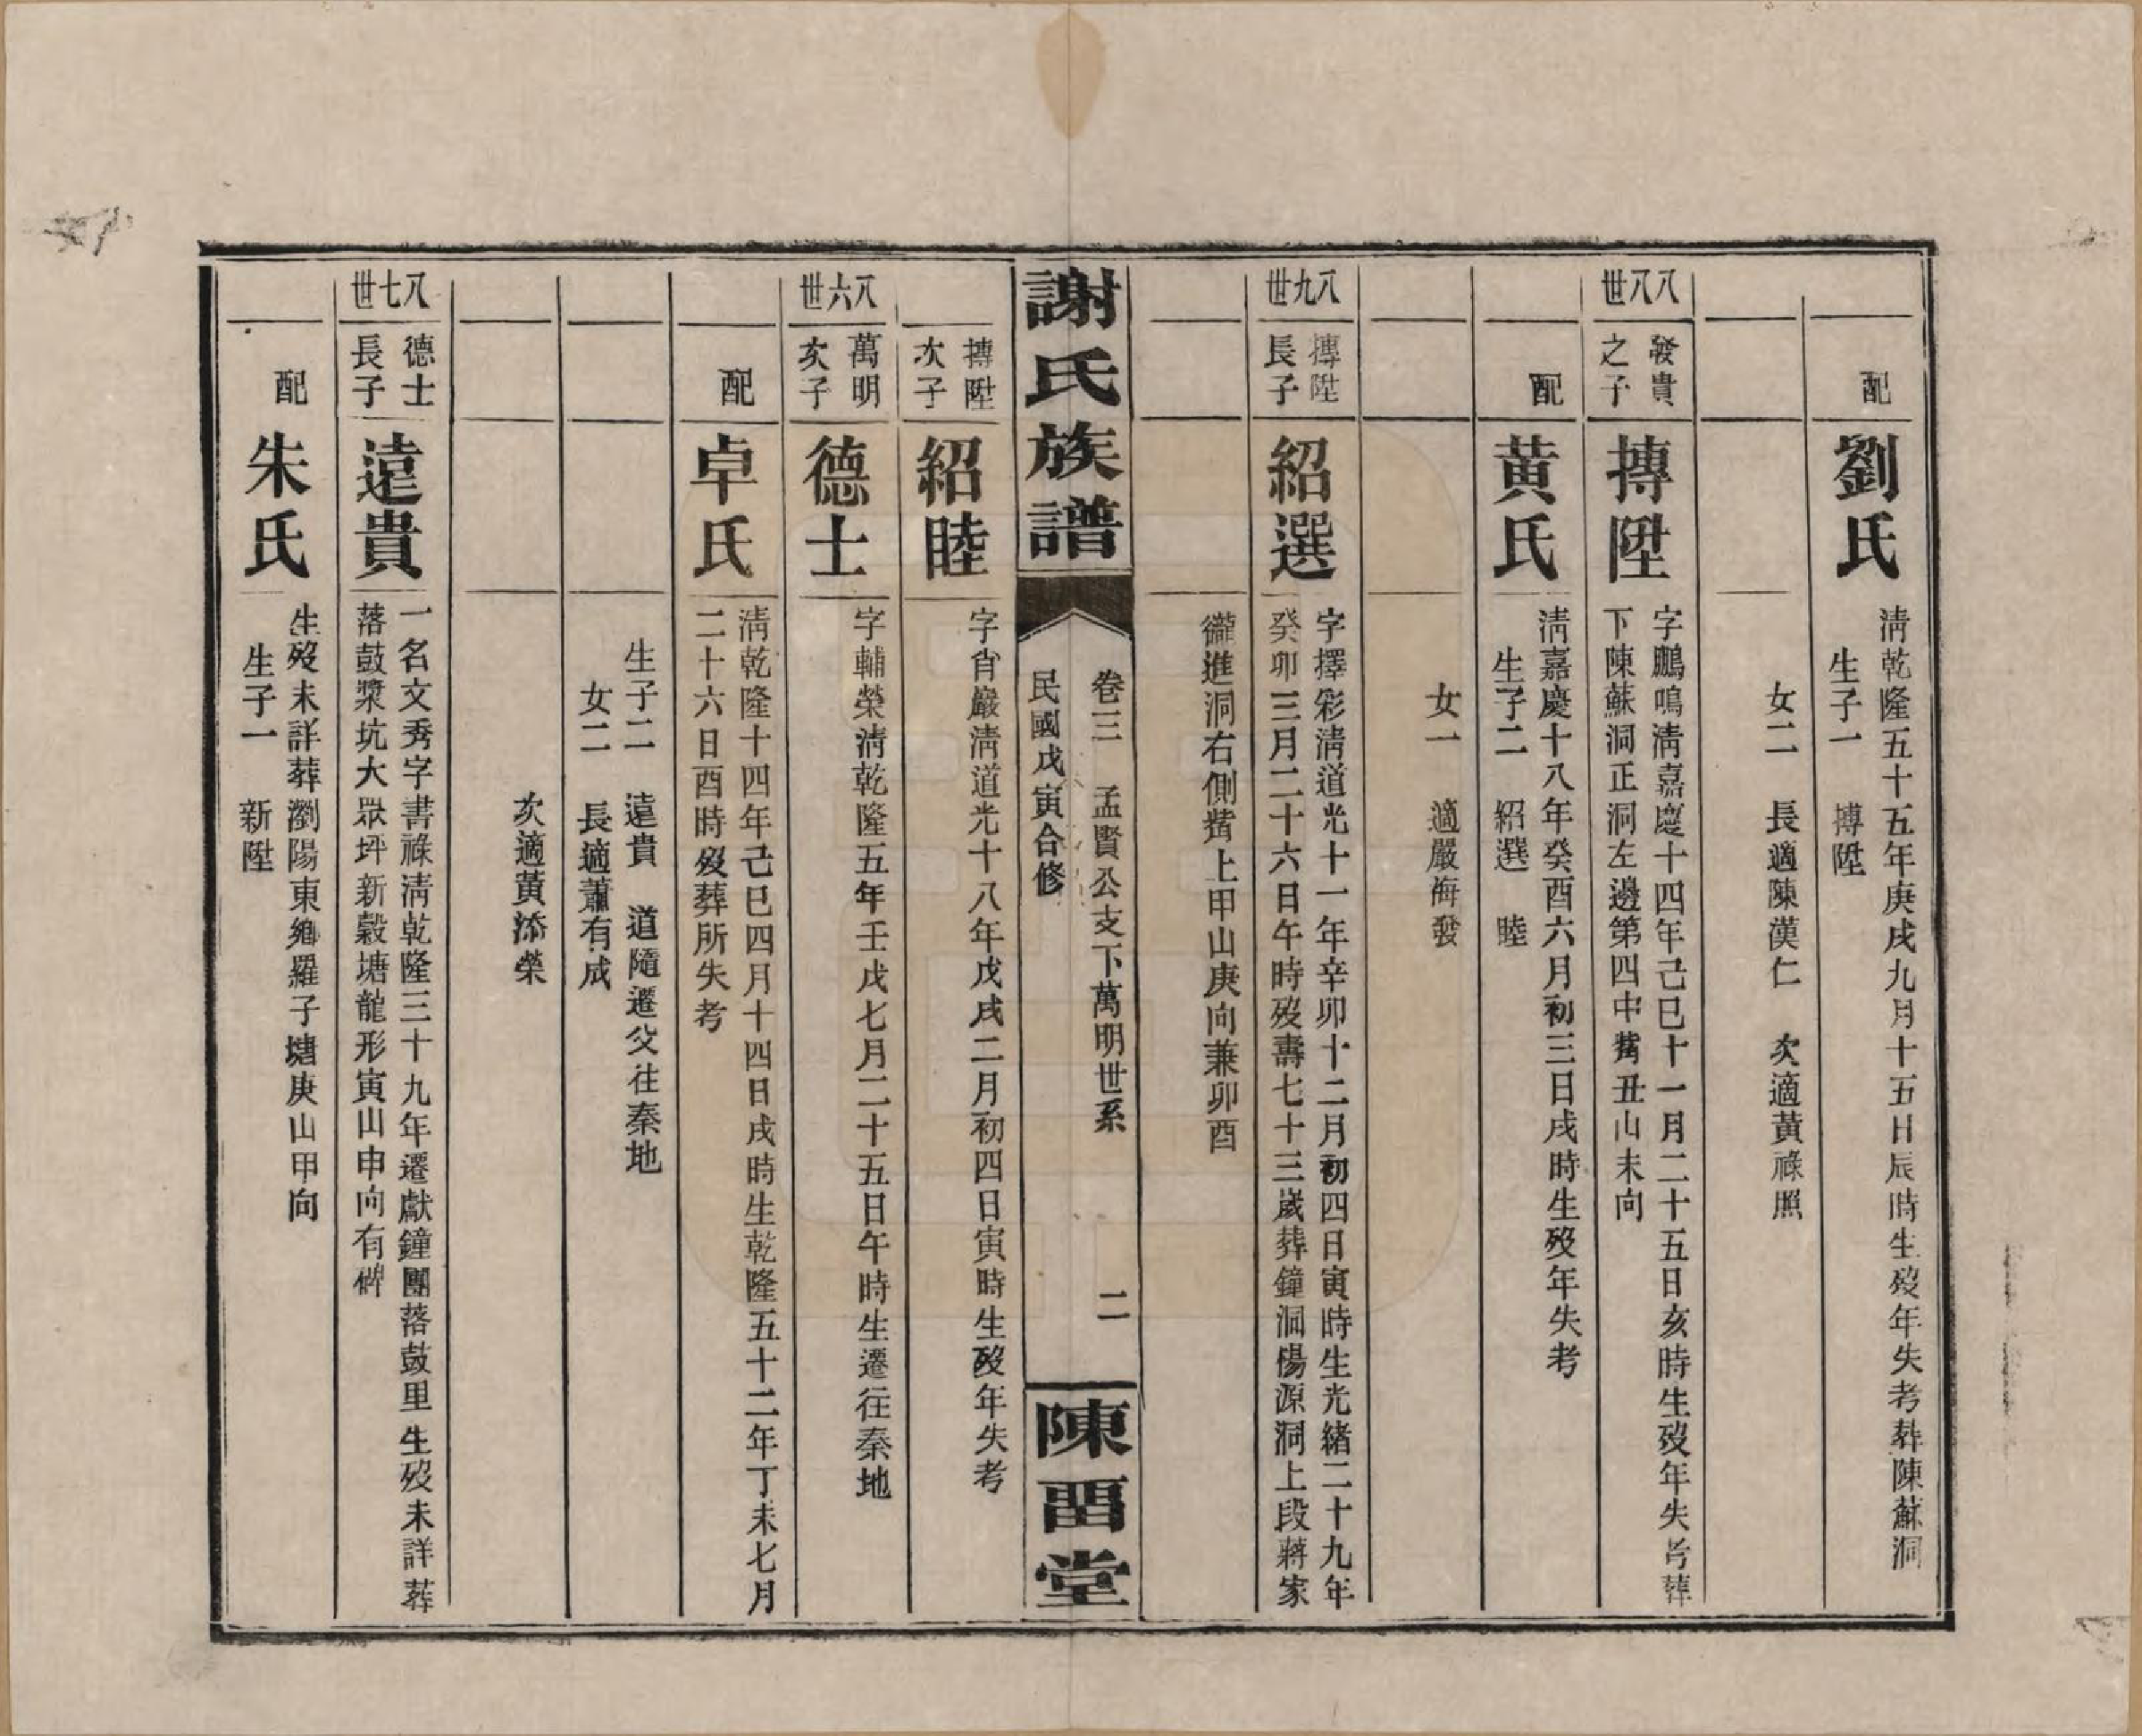 配
劉氏
淸乾隆五十五年庚戌九月十五日辰時生歿年失考葬陳蘇洞
生子一　搏陞
女二　長適陳漢仁　次適黃祿照
八八世
發貴
之子
搏陞
字鵬鳴淸嘉慶十四年己巳十一月二十五日亥時生歿年失考葬
下陳蘇洞正洞左邊第四中嘴丑山未向
配
黃氏
淸嘉慶十八年癸酉六月初三日戌時生歿年失考
生子二　紹選　睦
女一　適嚴海發
八九世
摶陞
長子
紹選
字擇彩淸道光十一年辛卯十二月初四日寅時生光緒二十九年
癸卯三月二十六日午時歿壽七十三歲葬鐘洞楊源洞上段蔣家
進洞右側嘴上甲山庚向兼卯酉
謝氏族譜
卷三　孟賢公支下萬明世系　二
民國戊寅合修
陳畱堂
摶陞
次子
紹睦
字肖巖淸道光十八年戊戌二月初四日寅時生歿年失考
八六世
萬明
次子
德士
字輔榮淸乾隆五年壬戌七月二十五日午時生遷往秦地
配
卓氏
淸乾隆十四年己巳四月十四日戌時生乾隆五十二年丁未七月
二十六日酉時歿葬所失考
生子二　遠貴　道隨遷父往秦地
女二　長適蕭有成
次適黃添榮
八七世
德士
長子
遠貴
一名文秀字書祿淸乾隆三十九年遷獻鐘團落鼓里生歿未詳葬
落鼓漿坑大眾坪新穀塘龍形寅山申向有碑
配
朱氏
生歿未詳葬瀏陽東鄉羅子塘庚山甲向
生子一　新陞